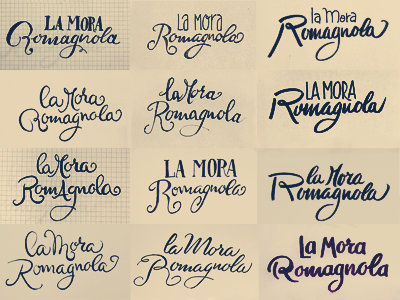 LA MORA
Romagnola
la Mora
Romagnola
la Mora
Romagnola
la Mora
Romagnola
la Mora
Romagnola
LA MORA
Romagnola
la Mora
RomAgnola
LA MORA
Romagnola
la Mora
Romagnola
la Mora
Romagnola
la Mora
Romagnola
La Mora
Romagnola